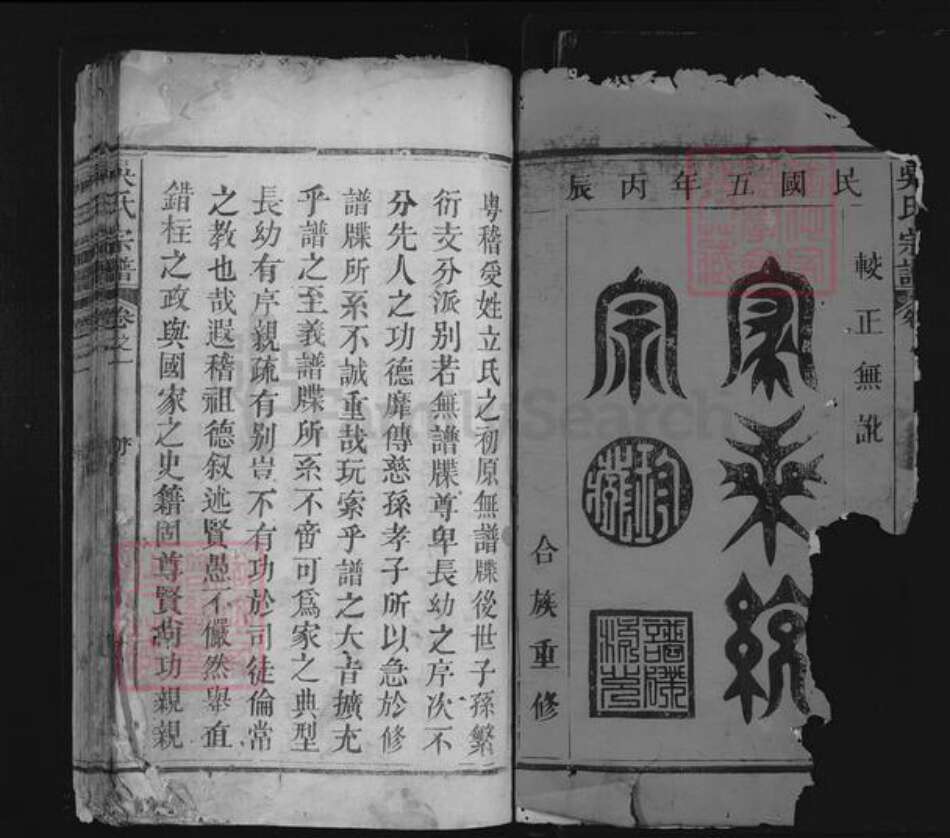 民國五年丙辰
吳氏宗譜
較正無訛
家乘統
宗
珍藏
譜牒
合族重修
粵稽受姓立氏之初原無譜牒後世子孫繁
衍支分派别若無譜牒尊卑長幼之序次不
分先人之功德靡傳慈孫孝子所以急於修
譜牒所系不誠重哉玩索乎譜之大旨擴充
乎譜之至義譜牒所系不啻可爲家之典型
長幼有序親疏有别豈不有功於司徒倫常
之教也哉遐稽祖德叙述賢愚不儼然舉直
錯枉之政與國家之史籍固尊賢尚功親親
吳氏宗譜
卷之一